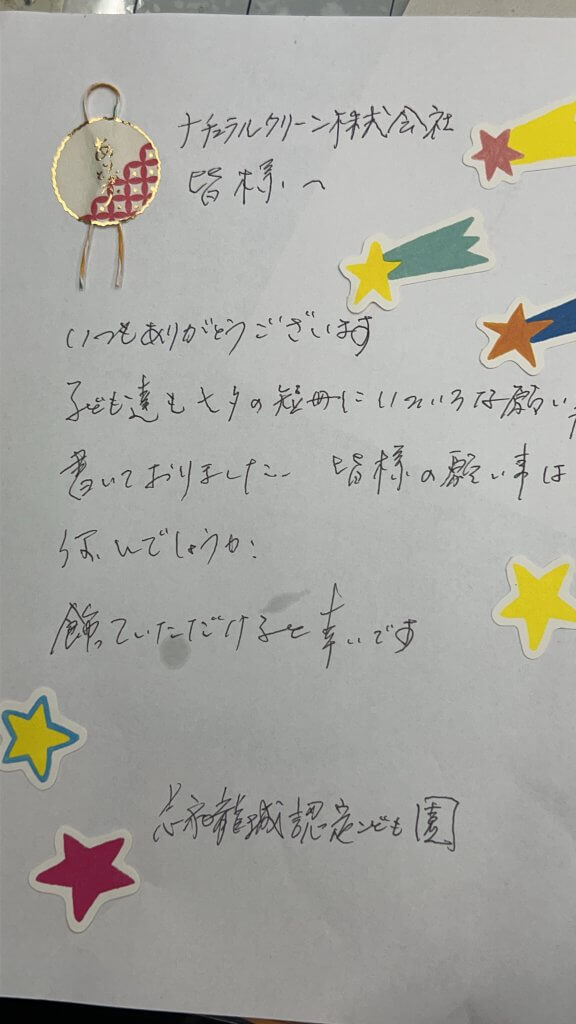 ありがとう
ナチュラルクリーン株式会社
皆様へ
いつもありがとうございます
子ども達も七夕の短冊にいろいろな願い
書いておりました 皆様の願い事は
何でしょうか
飾っていただけると幸いです
龍城認定こども園